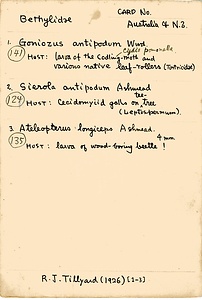 Bethylidae
CARD No.
Australia & N.Z.
1. Goniozus antipodum Wwd.
141
Cydia pomonella
HOST: larva of the Codling-moth and
various native leaf-rollers (Tortricidae)
2. Sierola antipodum Ashmead
124
HOST: Cecidomyiid galls on tea-tree
(Leptospermum).
3. Ateleopterus longiceps Ashmead.
135
4 mm
HOST: larva of wood-boring beetle !
R. J. Tillyard (1926) [1-3]